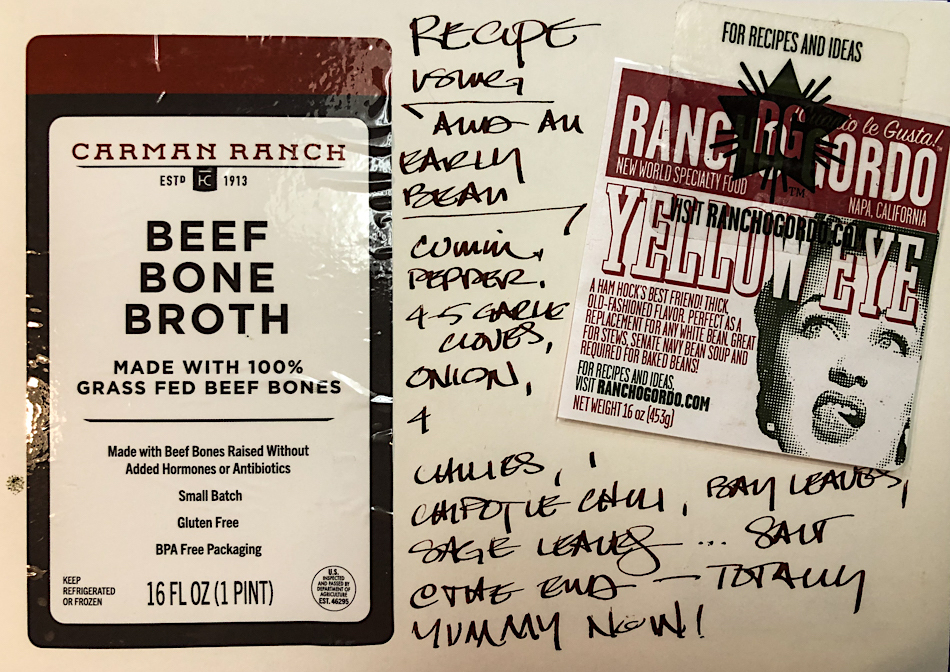 CARMAN RANCH
ESTD HC 1913
BEEF
BONE
BROTH
MADE WITH 100%
GRASS FED BEEF BONES
Made with Beef Bones Raised Without
Added Hormones or Antibiotics
Small Batch
Gluten Free
BPA Free Packaging
KEEP
REFRIGERATED
OR FROZEN
16 FL OZ (1 PINT)
U.S.
INSPECTED
AND PASSED BY
DEPARTMENT OF
AGRICULTURE
EST. 46295
RECIPE
USING
AND AN
EARLY
BEAN
CUMIN,
PEPPER.
4-5 GARLIC
CLOVES,
ONION,
4
CHILIES, 1
CHIPOTLE CHILI, BAY LEAVES,
SAGE LEAVES ... SALT
@ THE END — TOTALLY
YUMMY NOW!
FOR RECIPES AND IDEAS
RG
TM
VISIT RANCHOGORDO.COM
le Gusta!
RANCHO GORDO
NEW WORLD SPECIALTY FOOD
NAPA, CALIFORNIA
YELLOW EYE
A HAM HOCK'S BEST FRIEND! THICK,
OLD-FASHIONED FLAVOR. PERFECT AS A
REPLACEMENT FOR ANY WHITE BEAN. GREAT
FOR STEWS, SENATE NAVY BEAN SOUP AND
REQUIRED FOR BAKED BEANS!
FOR RECIPES AND IDEAS
VISIT RANCHOGORDO.COM
NET WEIGHT 16 oz (453g)